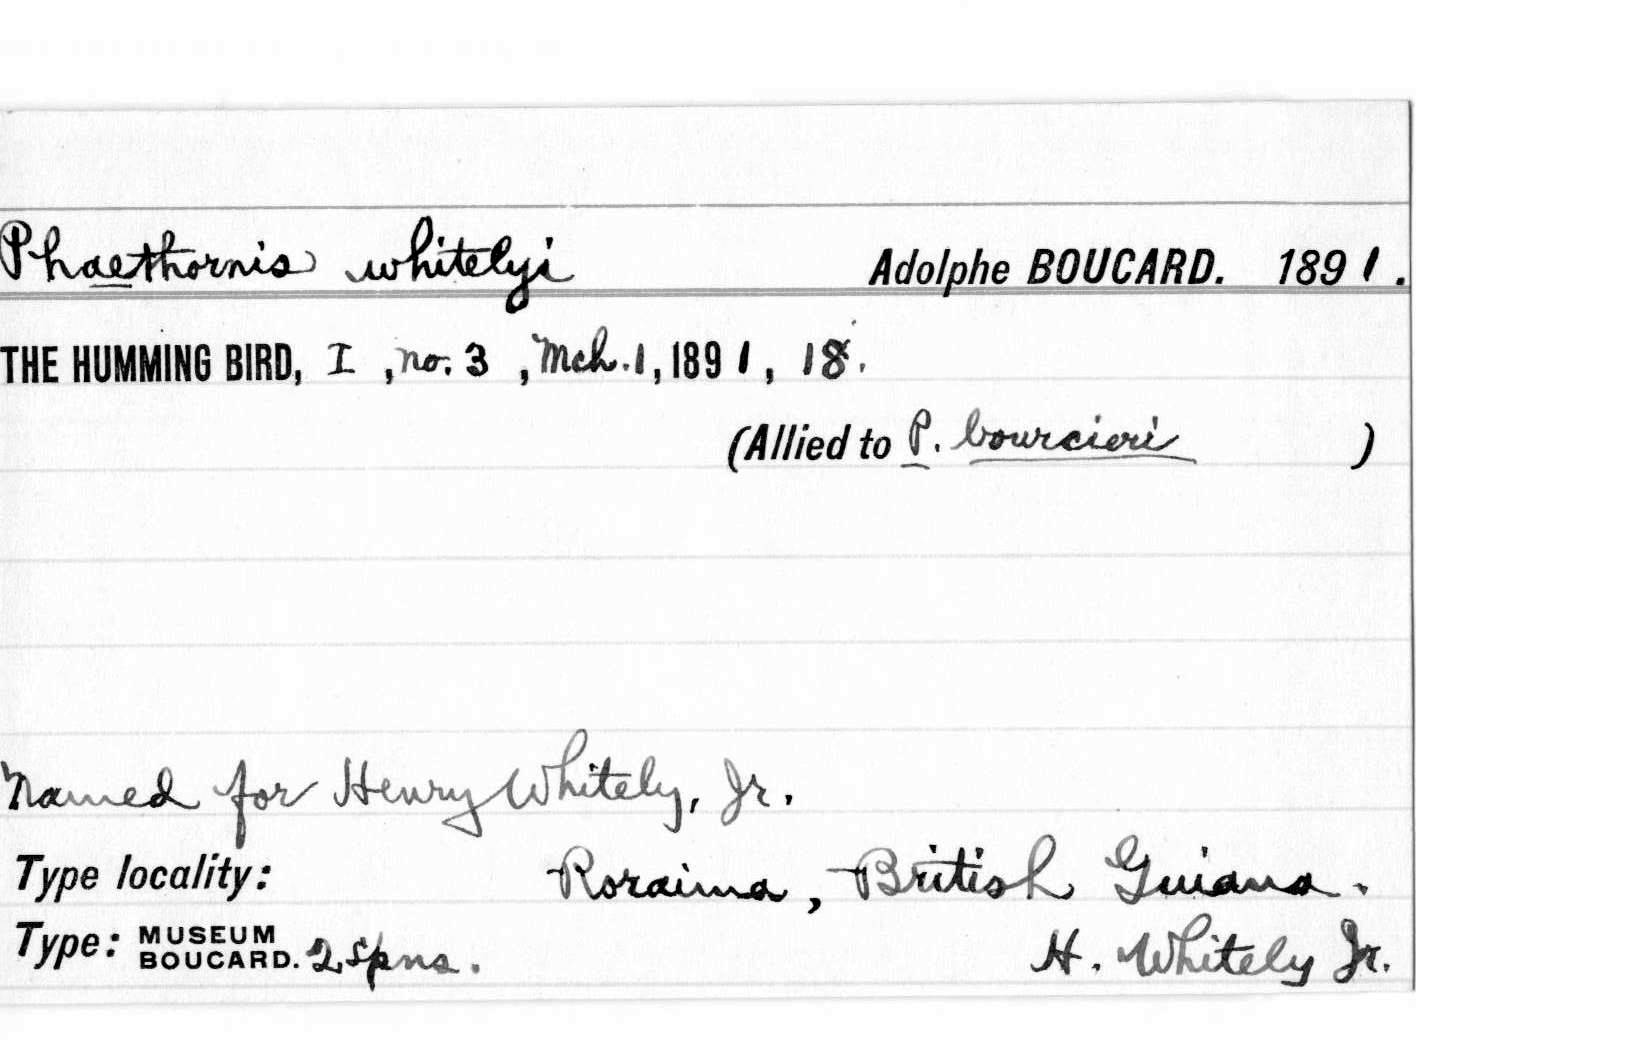 Phaethornis whitelyi Adolphe BOUCARD. 1891.
THE HUMMING BIRD, I, no. 3, Mch. 1, 1891, 18.
(Allied to P. bourcieri )
Named for Henry Whitely, Jr.
Type locality: Roraima, British Guiana.
Type: MUSEUM BOUCARD. 2 spns. H. Whitely Jr.